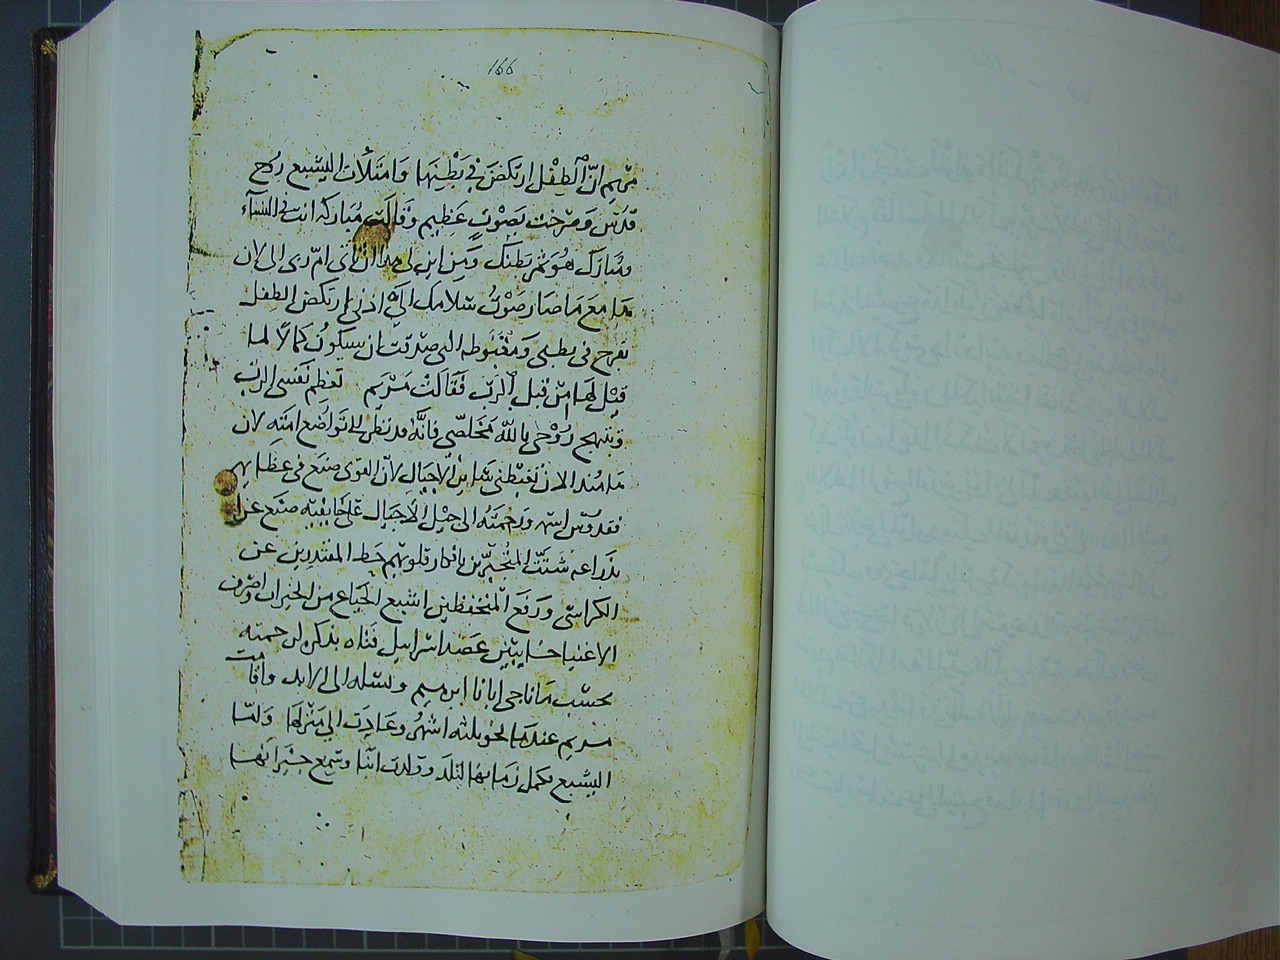 166
مريم انّ الطِفْل ارتكضَ في بَطْنِهَا وَامتَلأت اليشبع رُوح
قدُس وَصَرَخت بصَوْتٍ عَظيم وَقالت مُبَاركَة انتِ في النسَآء
ومُبارَك هُوَ ثمر بَطنَكِ وَمِن اين لي هذا ان اتى امّ ربى الى لان
هذا معَ مَا صَار صَوْتُ سَلامك الَيّ اذنى ارتكضَ الطفل
بفرح فى بطنى وَمغْبُوطه التى صدقت ان سيكونُ كمَالاً لما
قِيْلَ لهَا مِن قبل الرَبّ فَقالَتْ مَرْيَم تعَظِم نَفسى الربّ
وَتبتهج رُوْحى بالله مخَلصي فانّه قد نظر الى تواضُع امَتِه لان
هَا مُنذ الان تغبِطنى سَاير الأجيَال لأنّ القوى صنَع فى عظايم
تقدّس اسمه وَرحمَتُه الى جيْل الأجيَال على خَايفيه صنَع عزا
بذرَاعه شتّت المُتجَبّرين بافكار قلوبهم حَط المقتدِرين عن
الكراسى وَرفَع المنخفظين اشبع الجيَاع من الخيرات وَاصْرف
الاغنيا خايبين عَضد اسراييل فتاه بذكره لرحمته
بحسْب مَا ناجى ابانا ابرهيم ونسْله الى الابد واقامت
مريم عندهَا نحو ثلثه اشهُر وعَادت الى منزلهَا وَلمّا
اليشبع تكمل زمَانها لتلد وولدت ابنا وسَمِع جيرَانهَا